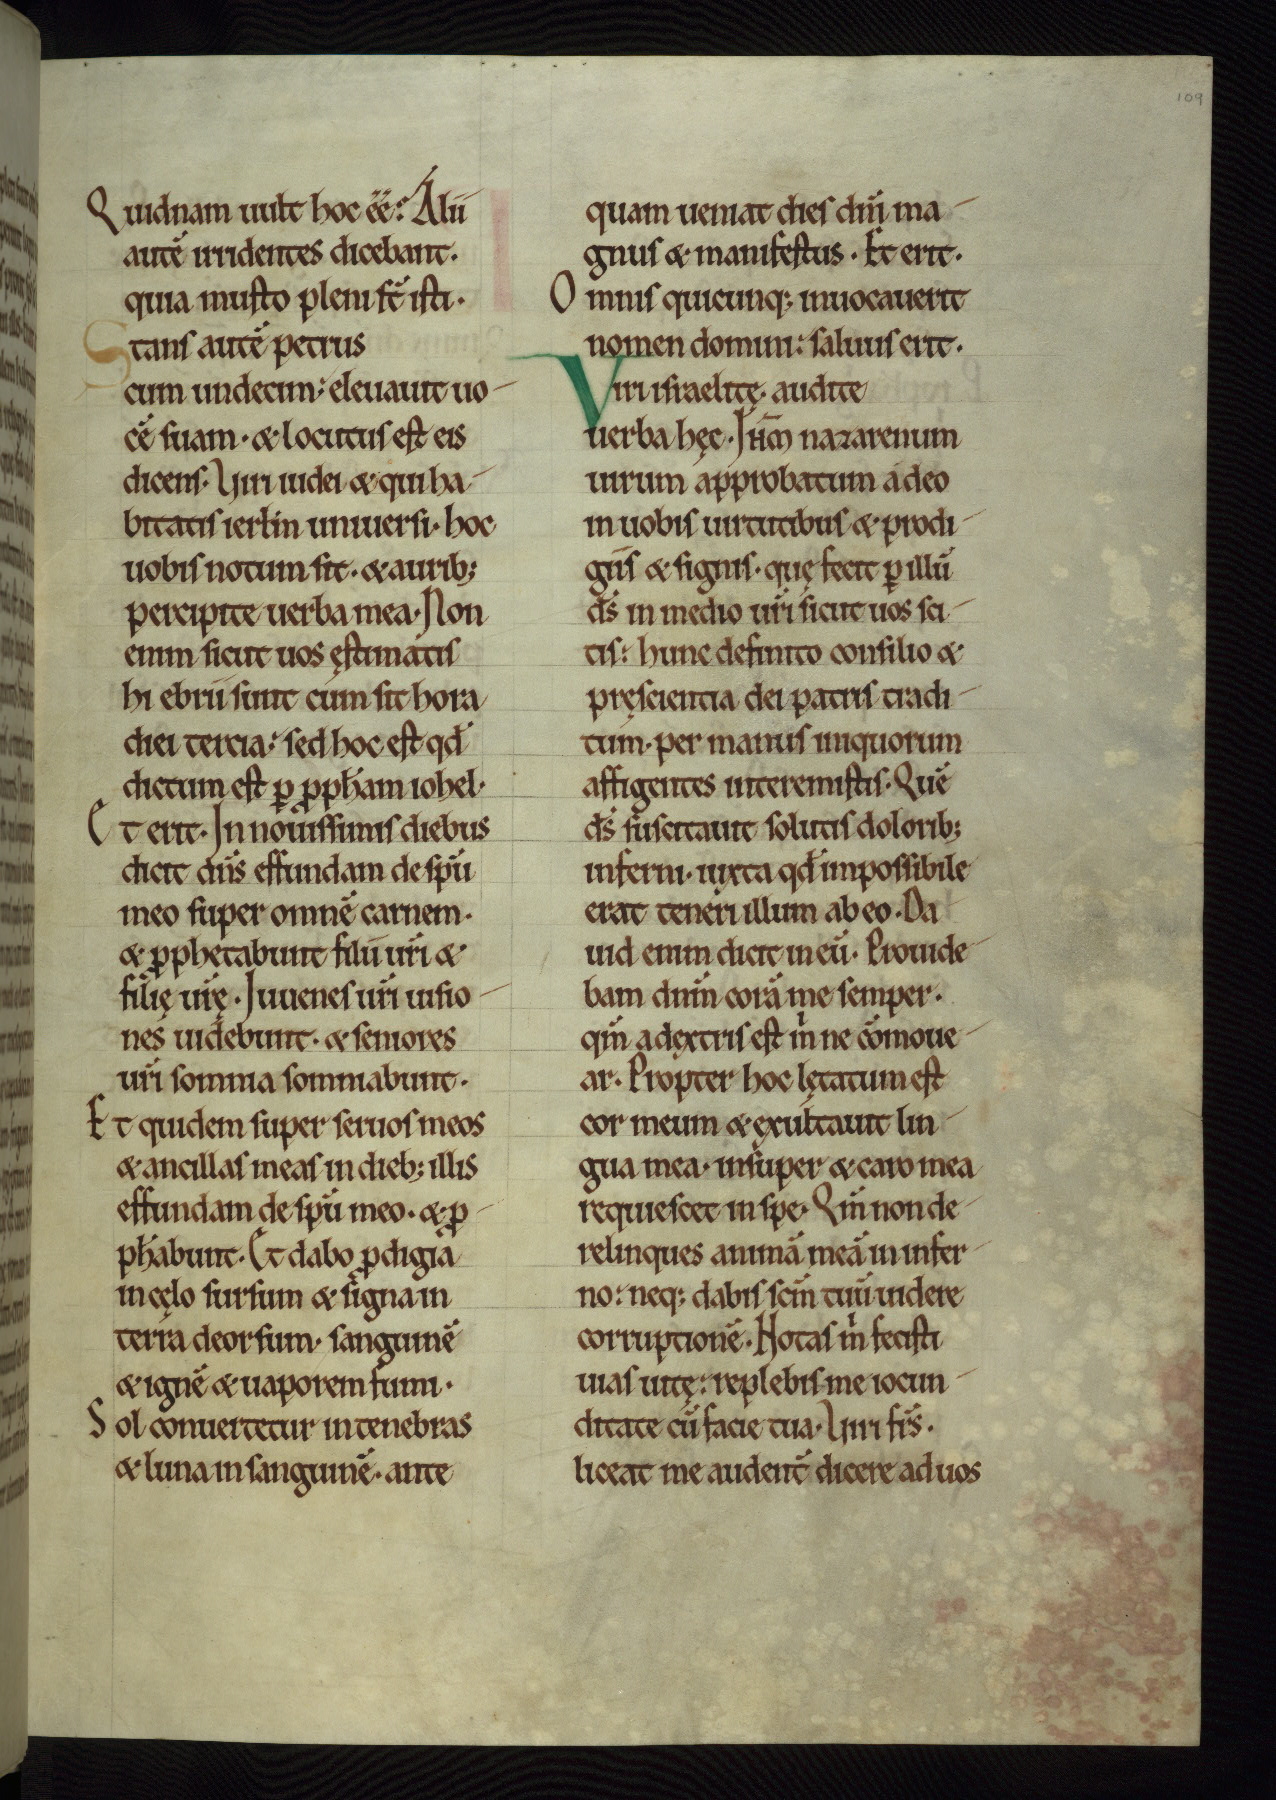 109
Quidnam uult hoc ēē? Alii
autē irridentes dicebant.
quia musto pleni sī isti.
Stans autē petrus
cum undecim: eleuauit uo
cē suam. & locutus est eis
dicens. Uiri iudei & qui ha
bitatis ierlm̄ uniuersi. hoc
uobis notum sit. & aurib;
percipite uerba mea. Non
enim sicut uos ęstimatis
hi ebrii sunt cum sit hora
diei tercia: sed hoc est qđ
dictum est ꝑ ꝓpham iohel.
Et erit. In nouissimis diebus
dicit dn̄s effundam de spū
meo super omnē carnem.
& ꝓphetabunt filii ur̄i &
filię ur̄ę. Iuuenes ur̄i uisio
nes uidebunt. & seniores
ur̄i somnia somniabunt.
Et quidem super seruos meos
& ancillas meas in dieb; illis
effundam de spū meo. & ꝓ
phabunt. Et dabo ꝓdigia
in cęlo sursum & signa in
terra deorsum. sanguinē
& ignē & uaporem fumi.
Sol conuertetur in tenebras
& luna in sanguinē. ante
quam ueniat dies dn̄i ma
gnus & manifestus. Et erit.
Omnis quicunq; inuocauerit
nomen domini: saluus erit.
Viri israelitę. audite
uerba hęc. Ihm̄ nazarenum
uirum approbatum a deo
in uobis uirtutibus & prodi
giis & signis. quę fecit ꝑ illū
d̄s in medio ur̄i sicut uos sci
tis: hunc definito consilio &
pręscientia dei patris tradi
tum. per manus iniquorum
affigentes interemistis. Quē
d̄s suscitauit solutis dolorib;
inferni. iuxta qđ impossibile
erat teneri illum ab eo. Da
uid enim dicit in eū. Prouide
bam dn̄m corā me semper.
qm̄ a dextris est m̄ ne cōmoue
ar. Propter hoc lętatum est
cor meum & exultauit lin
gua mea. insuper & caro mea
requiescet in spe. Qm̄ non de
relinques animā meā in infer
no: neq; dabis scm̄ tuū uidere
corruptionē. Notas m̄ fecisti
uias uitę: replebis me iocun
ditate cū facie tua. Uiri fr̄s.
liceat me audent̄ dicere ad uos